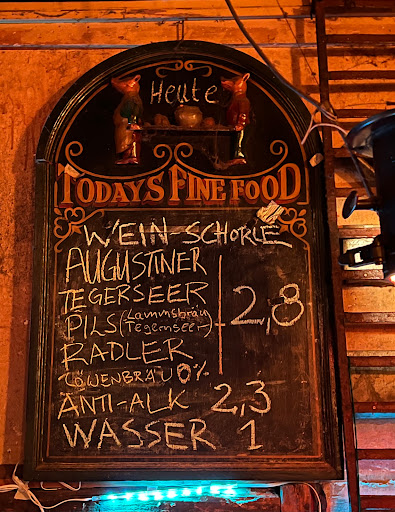 Heute
TODAYS FINE FOOD
WEIN-SCHORLE
AUGUSTINER
TEGERSEER
PILS (Lammsbräu
Tegernseer)
2,8
RADLER
LÖWENBRÄU 0%
ANTI-ALK 2,3
WASSER 1